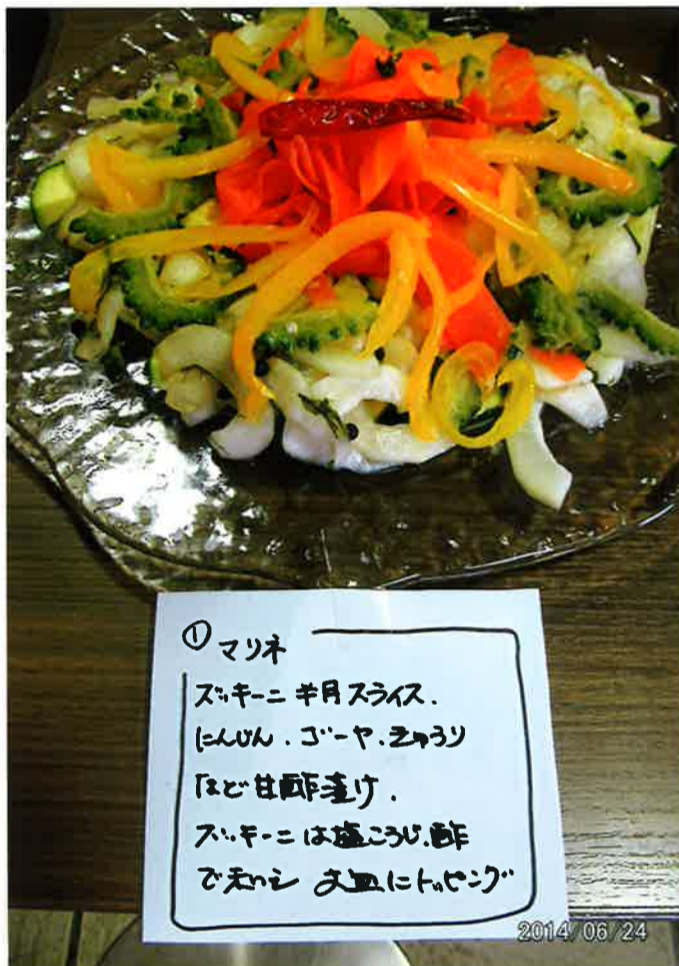 ① マリネ
ズッキーニ 半月スライス.
にんじん.ゴーヤ.きゅうり
など甘酢漬け.
ズッキーニは塩こうじ.酢
で お皿にトッピング
2014/06/24